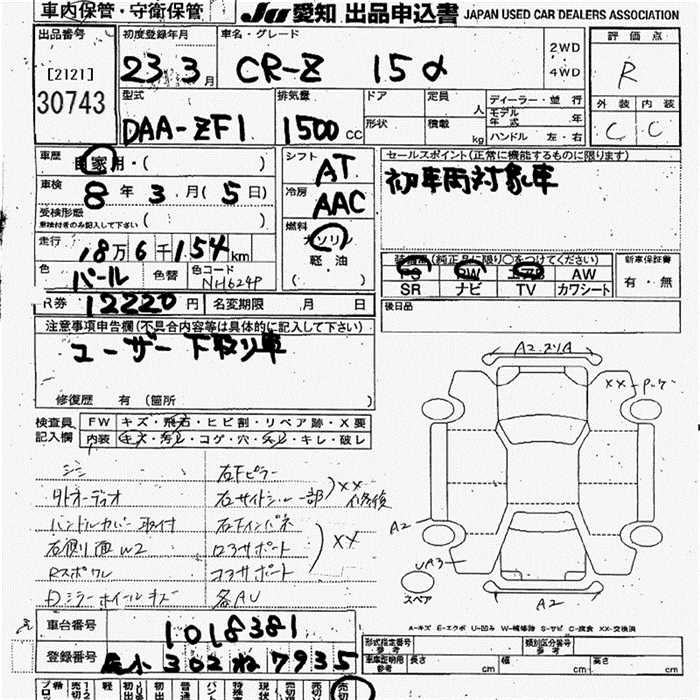 車内保管・守衛保管
JU 愛知 出品申込書 JAPAN USED CAR DEALERS ASSOCIATION
出品番号
[2121]
30743
初度登録年月
23.3月
車名・グレード
CR-Z 15α
2WD
4WD
評価点
R
外装 内装
C C
型式
DAA-ZF1
排気量
1500 CC
ドア
形状
定員 人
積載 kg
ディーラー・並行
モデル年式 年
ハンドル 左・右
車歴
自家用・( )
車検
8年3月(5日)
受検形態
車検付者のみ記入して下さい ( )
走行
18万6千154km
色
パール
色替
色コード
NH624P
R券 12220円
名変期限 月 日
シフト
AT
冷房
AAC
燃料
ガソリン
軽・油
( )
セールスポイント(正常に機能するものに限ります)
初車両対象車
装備欄(純正品に限り○をつけてください)
PS PW AW
SR ナビ TV カワシート
新車保証書
有・無
後日品
注意事項申告欄(不具合内容等は具体的に記入して下さい)
ユーザー下取り車
修復歴 有(箇所
検査員記入欄
FW キズ・飛石・ヒビ割・リペア跡・X要
内装 キズ・汚レ・コゲ・穴・スレ・キレ・破レ
シミ
外オーディオ
ハンドルカバー取付
右側面W2
Rスポワレ
Dミラーホイールキズ
右Fピラー
右サイドシル一部
XX 修後
右Fインパネ
ロアサポート
コアサポート
XX
各AU
A2
XX
A2
UA3
A2
スペア
A-キズ E-エクボ U-凹み W-補修跡 S-サビ C-腐食 XX-交換済
車台番号
1018381
登録番号
302 ね 7935
形式指定番号
参考
類別区分番号
参考
車庫証明用
参考
長さ cm
幅 cm
高さ cm